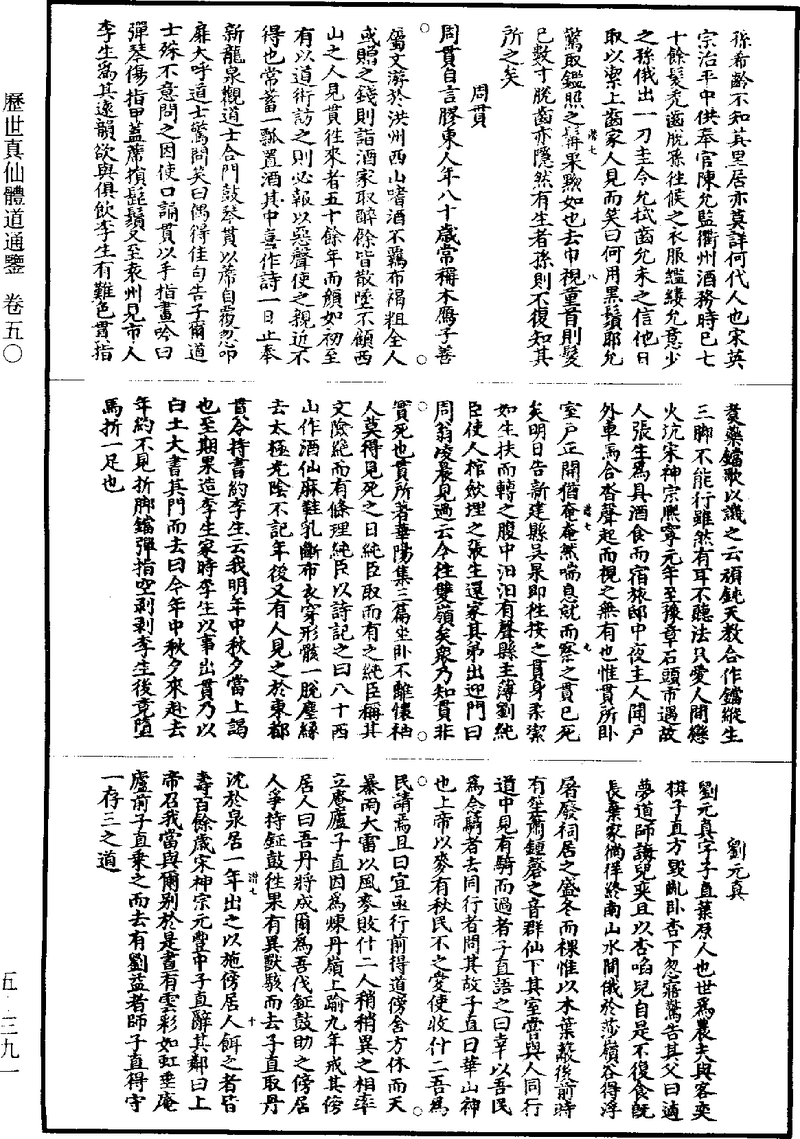 歷世真仙體道通鑒 卷五〇
五·三九一
孫希齡不知其里居亦莫詳何代人也宋英
宗治平中供奉官陳允監衢州酒務時已七
十餘髮禿齒脫孫往候之衣服繿縷允意少
之孫俄出一刀圭令允拭齒允未之信他日
取以潔上齒家人見而笑曰何用黑鬚耶允
驚取鑑照之髯果黟如也去巾視童首則髮
已數寸脫齒亦隱然有生者孫則不復知其
所之矣
周貫
周貫自言膠東人年八十歲常稱木鴈子善
屬文游於洪州西山嗜酒不羈布褐粗全人
或贈之錢則詣酒家取醉餘皆散墜不顧西
山之人見貫往來者五十餘年而顏如初至
有以道術訪之則必報以惡聲使之親近不
得也常蓄一瓢置酒其中喜作詩一日止奉
新龍泉觀道士合門鼓琴貫以席自覆忽叩
扉大呼道士驚問笑曰偶得佳句告子爾道
士殊不意問之因使口誦貫以手指畫吟曰
彈琴傷指甲蓋席損髭鬚又至袁州見市人
李生為其遠韻欲與俱飲李生有難色貫指
煑藥鐺歌以譏之云頑鈍天教合作鐺縱生
三脚不能行雖然有耳不聽法只愛人間戀
火坑宋神宗熙寧元年至豫章石頭市遇故
人張生為具酒食而宿旅邸中夜主人聞戶
外車馬合沓聲起而視之無有也惟貫所卧
室戶正開猶奄奄然喘息就而察之貫已死
矣明日告新建縣吳杲即往按之貫身柔潔
如生扶而轉之腹中汩汩有聲縣主薄劉純
臣使人棺歛埋之張生還家其弟出迎門曰
周翁凌晨見過云今往雙嶺矣衆乃知貫非
實死也貫所著華陽集三篇坐卧不離懷袖
人莫得見死之日純臣取而有之純臣稱其
文險絕而有條理純臣以詩記之曰八十西
山作酒仙麻鞋乳斷布衣穿形骸一脫塵緣
去太極光陰不記年後又有人見之於東都
貫令持書約李生云我明年中秋夕當上謁
也至期果造李生家時李生以事出貫乃以
白土大書其門而去曰今年中秋夕來赴去
年約不見折脚鐺彈指空剥剥李生後竟墮
馬折一足也
劉元真
劉元真字子直葉縣人也世為農夫與客奕
棋子直方毀亂卧杏下忽寤驚告其父曰適
夢道師誨兒奕且以杏啗兒自是不復食旣
長棄家徜徉終南山水間俄於莎嶺谷得浮
屠廢祠居之盛冬而裸惟以木葉蔽後前時
有笙蕭鍾磬之音群仙下其室嘗與人同行
道中見有騎而過者子直語之曰幸以吾民
為念騎者去同行者問其故子直曰華山神
也上帝以麥有秋民不之愛使收什二吾為
民請焉且曰宜亟行前得道傍舍方休而天
暴雨大雷以風麥敗什二人稍稍異之相率
立庵廬子直因為煉丹嶺上踰九年戒其傍
居人曰吾丹將成爾為吾伐鉦鼓助之傍居
人爭持鉦鼓徃果有異獸駭而去子直取丹
沈於泉居一年出之以施傍居人餌之者皆
壽百餘歲宋神宗元豐中子直辭其鄰曰上
帝召我當與爾别於是晝有雲彩如虹垂庵
廬前子直乘之而去有劉益者師子直得守
一存三之道